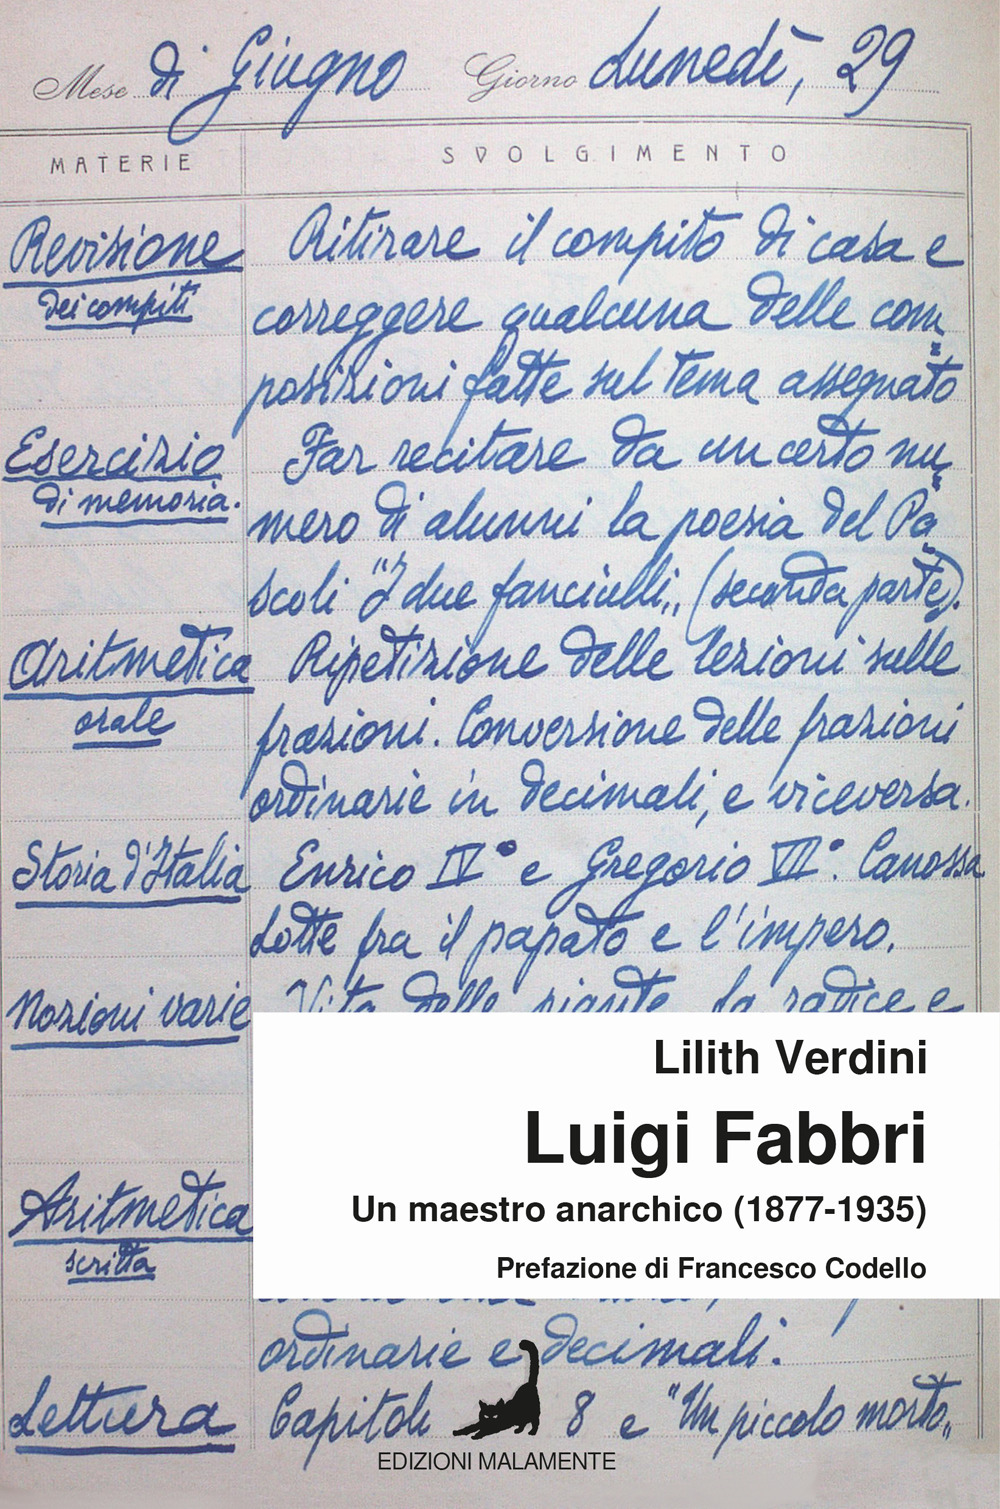 Mese di Giugno Giorno Lunedì, 29
MATERIE SVOLGIMENTO
Revisione Ritirare il compito di casa e
dei compiti correggere qualcuna delle com=
posizioni fatte sul tema assegnato
Esercizio Far recitare da un certo nu=
di memoria. mero di alunni la poesia del Pa=
scoli "I due fanciulli„ (seconda parte).
Aritmetica Ripetizione delle lezioni sulle
orale frazioni. Conversione delle frazioni
ordinarie in decimali, e viceversa.
Storia d'Italia Enrico IV° e Gregorio VII°. Canossa
Lotte fra il papato e l'impero.
Nozioni varie Vita delle piante. La radice e
Lilith Verdini
Luigi Fabbri
Aritmetica
Un maestro anarchico (1877-1935)
scritta
Prefazione di Francesco Codello
ordinarie e decimali.
Lettura Capitoli 8 e "Un piccolo morto„
EDIZIONI MALAMENTE